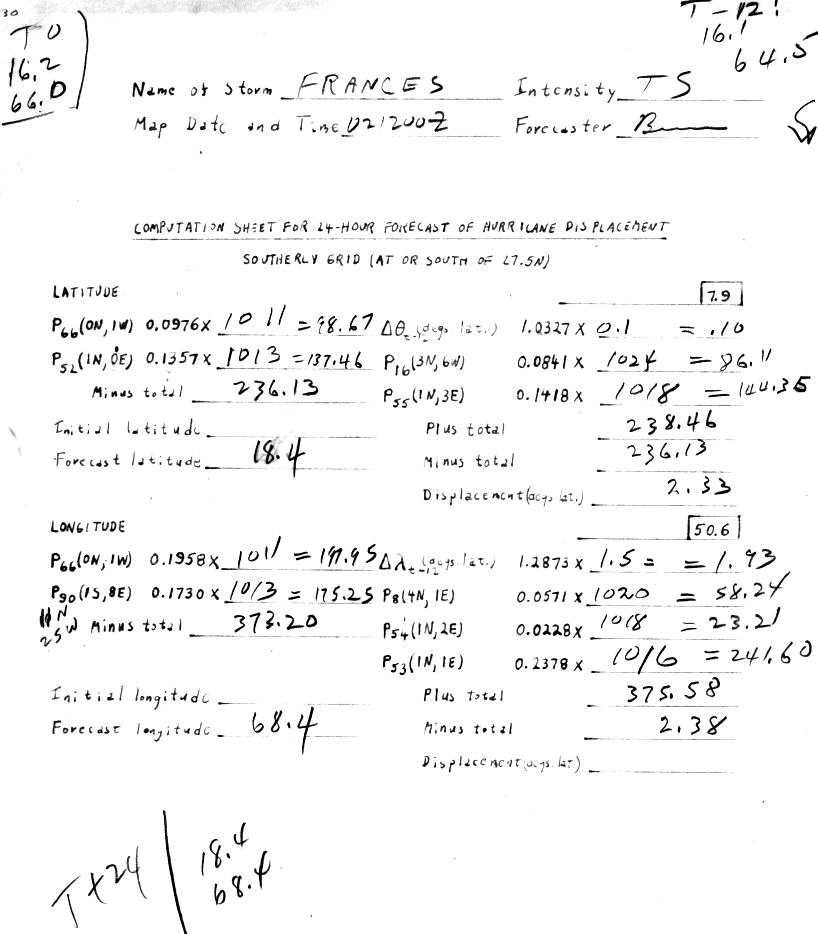 30
T 0
16.2
66.0
T-12:
16.1
64.5
Name of Storm FRANCES Intensity TS
Map Date and Time 021200Z Forecaster
COMPUTATION SHEET FOR 24-HOUR FORECAST OF HURRICANE DISPLACEMENT
SOUTHERLY GRID (AT OR SOUTH OF 27.5N)
LATITUDE 7.9
P66(0N,1W) 0.0976 X 1011 = 98.67 Δθt-12 (degs. lat.) 1.0327 X 0.1 = .10
P52(1N,0E) 0.1357 X 1013 = 137.46 P16(3N,6W) 0.0841 X 1024 = 86.11
Minus total 236.13 P55(1N,3E) 0.1418 X 1018 = 144.35
Initial latitude Plus total 238.46
Forecast latitude 18.4 Minus total 236.13
Displacement (degs. lat.) 2.33
LONGITUDE 50.6
P66(0N,1W) 0.1958 X 1011 = 197.95 Δλt-12 (degs. lat.) 1.2873 X 1.5 = = 1.93
P90(1S,8E) 0.1730 X 1013 = 175.25 P8(4N,1E) 0.0571 X 1020 = 58.24
Minus total 373.20 P54(1N,2E) 0.0228 X 1018 = 23.21
P53(1N,1E) 0.2378 X 1016 = 241.60
Initial longitude Plus total 375.58
Forecast longitude 68.4 Minus total 2.38
Displacement (degs. lat)
T+24
18.4
68.4